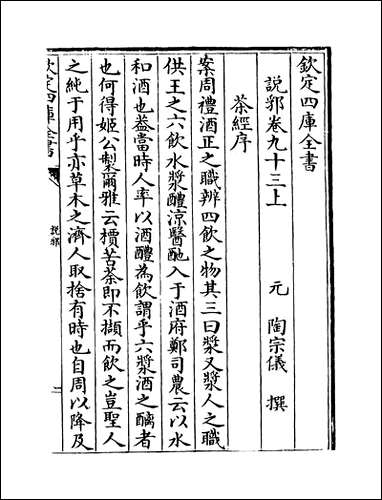 欽定四庫全書
説郛卷九十三上
元 陶宗儀 撰
茶經序
案周禮酒正之職辨四飲之物其三曰漿又漿人之職
供王之六飲水漿醴涼醫酏入于酒府鄭司農云以水
和酒也葢當時人率以酒醴為飲謂乎六漿酒之醨者
也何得姬公製爾雅云檟苦荼即不擷而飲之豈聖人
之純于用乎亦草木之濟人取捨有時也自周以降及
欽定四庫全書
説郛